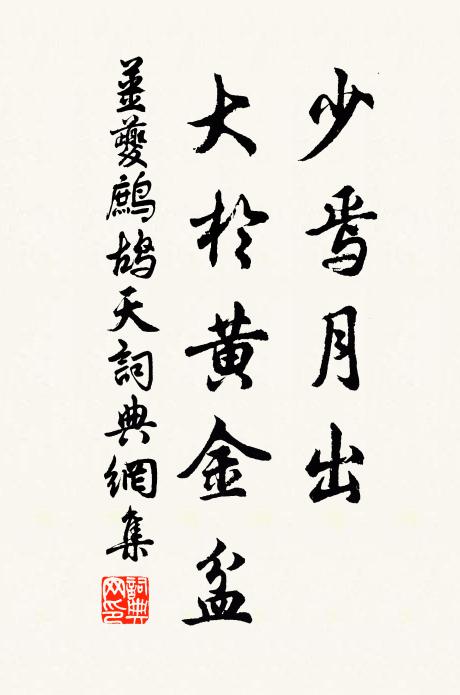 少焉月出
大於黄金盆
姜夔鷓鴣天詞典網集
詞典
网印